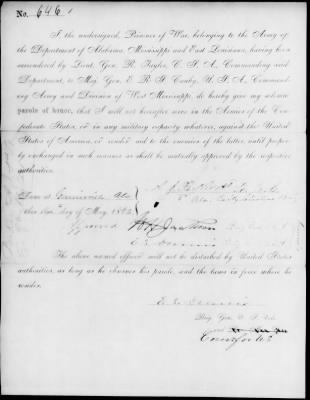 No. 646
I the undersigned, Prisoner of War, belonging to the Army of
the Department of Alabama, Mississippi and East Louisiana, having been
surrendered by Lieut. Gen. R. Taylor, C. S. A., Commanding said
Department, to Maj. Gen. E. R. S. Canby, U. S. A., Command-
ing Army and Division of West Mississippi, do hereby give my solemn
parole of honor, that I will not hereafter serve in the Armies of the Con-
federate States, or in any military capacity whatever, against the United
States of America, or render aid to the enemies of the latter, until prop-
erly exchanged in such manner as shall be mutually approved by the respective
authorities.
Done at Gainesville Ala
this day of May, 1865.
Approved
E. S. Dennis
The above named officer will not be disturbed by United States
authorities, as long as he observes his parole, and the laws in force where he
resides.
E. S. Dennis
Brig. Gen. U. S. Vols.
Com for U S